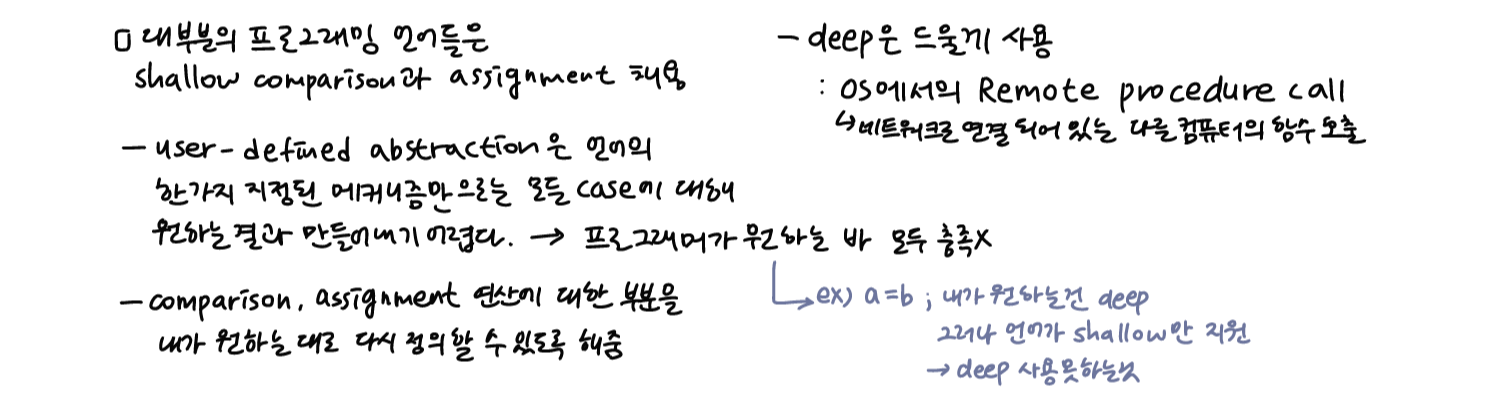 □ 대부분의 프로그래밍 언어들은
shallow comparison과 assignment 채용
- user-defined abstraction은 언어의
한가지 지정된 메커니즘만으로는 모든 case에 대해
원하는 결과 만들어내기 어렵다. → 프로그래머가 원하는 바 모두 충족X
↳ ex) a=b ; 내가 원하는건 deep
그러나 언어가 shallow만 지원
→ deep 사용못하는것
- comparison, assignment 연산에 대한 부분을
내가 원하는 대로 다시 정의할 수 있도록 해줌
- deep은 드물게 사용
: OS에서의 Remote procedure call
↳ 네트워크로 연결 되어 있는 다른 컴퓨터의 함수 호출